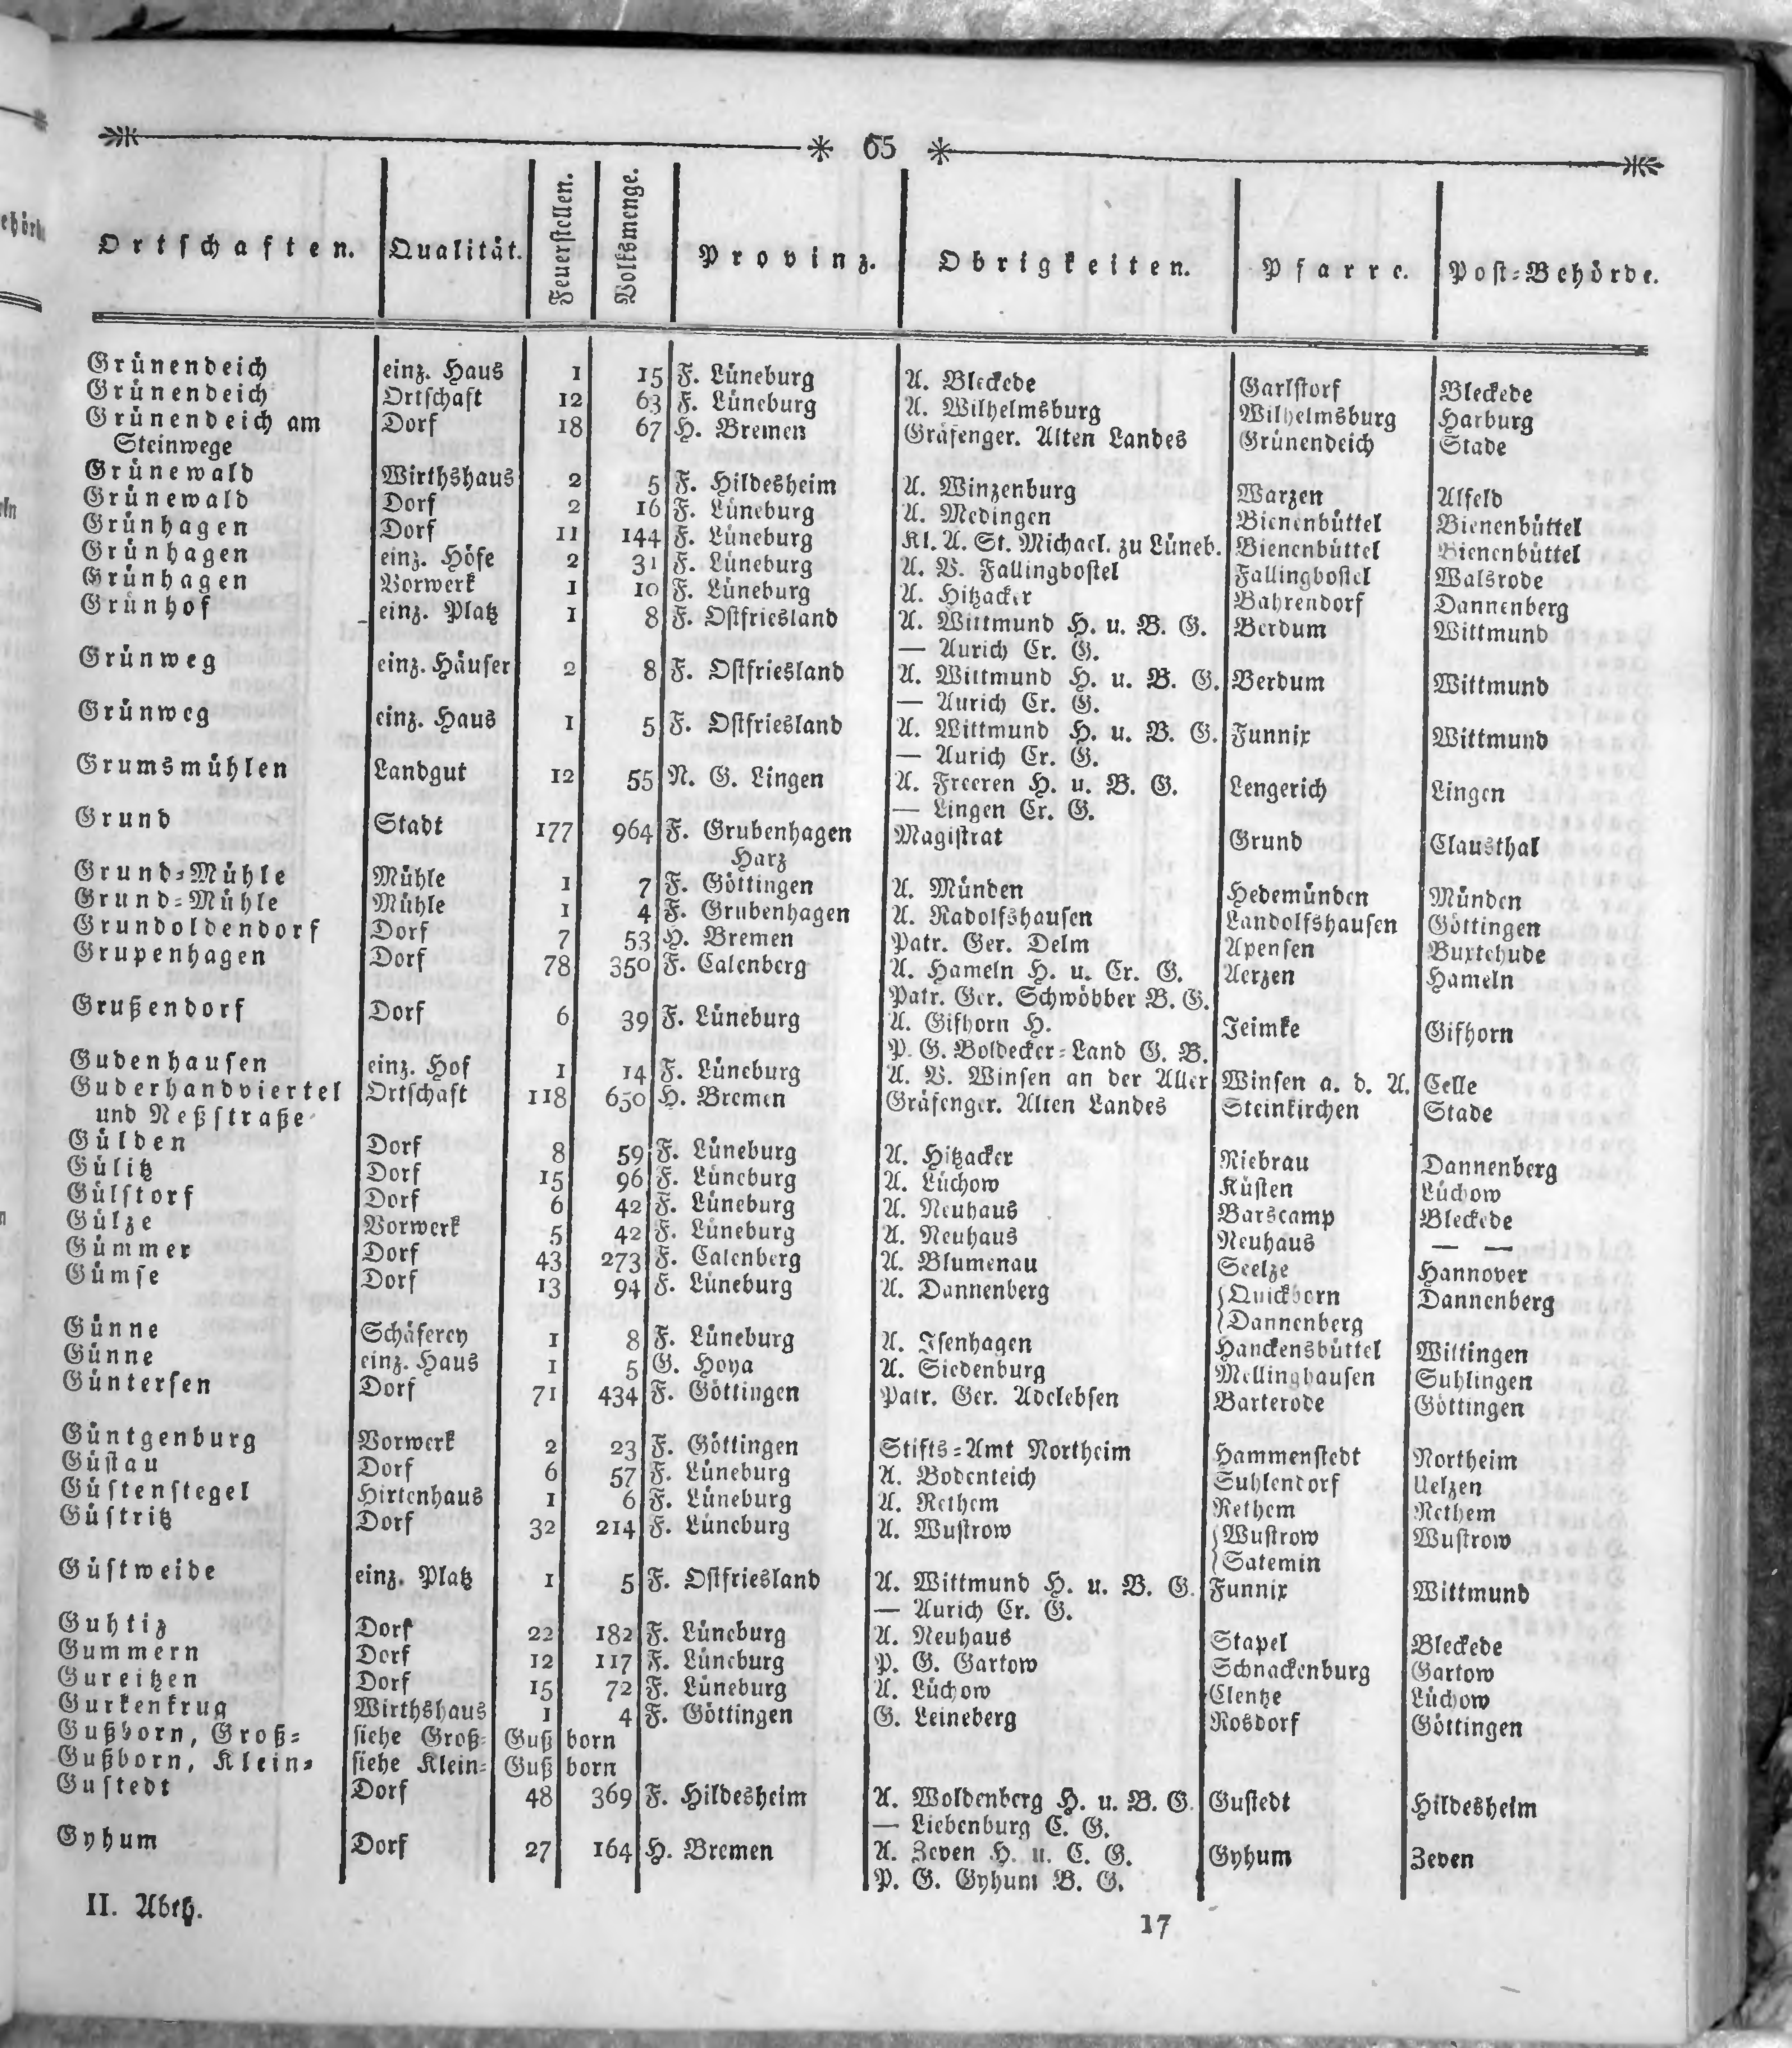 65
Ortschaften. Qualität. Feuerstellen. Volksmenge. Provinz. Obrigkeiten. Pfarre. Post=Behörde.
Grünendeich einz. Haus 1 15 F. Lüneburg A. Bleckede Garlstorf Bleckede
Grünendeich Ortschaft 12 63 F. Lüneburg A. Wilhelmsburg Wilhelmsburg Harburg
Grünendeich am Dorf 18 67 H. Bremen Gräfenger. Alten Landes Grünendeich Stade
Steinwege
Grünewald Wirthshaus 2 5 F. Hildesheim A. Winzenburg Warzen Alfeld
Grünewald Dorf 2 16 F. Lüneburg A. Medingen Bienenbüttel Bienenbüttel
Grünhagen Dorf 11 144 F. Lüneburg Kl. A. St. Michael. zu Lüneb. Bienenbüttel Bienenbüttel
Grünhagen einz. Höfe 2 31 F. Lüneburg A. V. Fallingbostel Fallingbostel Walsrode
Grünhagen Vorwerk 1 10 F. Lüneburg A. Hitzacker Bahrendorf Dannenberg
Grünhof einz. Platz 1 8 F. Ostfriesland A. Wittmund H. u. B. G. Berdum Wittmund
— Aurich Cr. G.
Grünweg einz. Häuser 2 8 F. Ostfriesland A. Wittmund H. u. B. G. Berdum Wittmund
— Aurich Cr. G.
Grünweg einz. Haus 1 5 F. Ostfriesland A. Wittmund H. u. B. G. Funnix Wittmund
— Aurich Cr. G.
Grumsmühlen Landgut 12 55 N. G. Lingen A. Freeren H. u. B. G. Lengerich Lingen
— Lingen Cr. G.
Grund Stadt 177 964 F. Grubenhagen Magistrat Grund Clausthal
Harz
Grund=Mühle Mühle 1 7 F. Göttingen A. Münden Hedemünden Münden
Grund=Mühle Mühle 1 4 F. Grubenhagen A. Radolfshausen Landolfshausen Göttingen
Grundoldendorf Dorf 7 53 H. Bremen Patr. Ger. Delm Apensen Buxtehude
Grupenhagen Dorf 78 350 F. Calenberg A. Hameln H. u. Cr. G. Aerzen Hameln
Patr. Ger. Schwöbber B. G.
Grußendorf Dorf 6 39 F. Lüneburg A. Gifhorn H. Jeimke Gifhorn
P. G. Boldecker=Land G. B.
Gudenhausen einz. Hof 1 14 F. Lüneburg A. V. Winsen an der Aller Winsen a. d. A. Celle
Guderhandviertel Ortschaft 118 650 H. Bremen Gräfenger. Alten Landes Steinkirchen Stade
und Neßstraße
Gülden Dorf 8 59 F. Lüneburg A. Hitzacker Riebrau Dannenberg
Gülitz Dorf 15 96 F. Lüneburg A. Lüchow Küsten Lüchow
Gülstorf Dorf 6 42 F. Lüneburg A. Neuhaus Barscamp Bleckede
Gülze Vorwerk 5 42 F. Lüneburg A. Neuhaus Neuhaus — —
Gümmer Dorf 43 273 F. Calenberg A. Blumenau Seelze Hannover
Gümse Dorf 13 94 F. Lüneburg A. Dannenberg {Quickborn Dannenberg
{Dannenberg
Günne Schäferey 1 8 F. Lüneburg A. Isenhagen Hanckensbüttel Wittingen
Günne einz. Haus 1 5 G. Hoya A. Siedenburg Mellinghausen Suhlingen
Güntersen Dorf 71 434 F. Göttingen Patr. Ger. Adelebsen Barterode Göttingen
Güntgenburg Vorwerk 2 23 F. Göttingen Stifts=Amt Northeim Hammenstedt Northeim
Güstau Dorf 6 57 F. Lüneburg A. Bodenteich Suhlendorf Uelzen
Güstenstegel Hirtenhaus 1 6 F. Lüneburg A. Rethem Rethem Rethem
Güstritz Dorf 32 214 F. Lüneburg A. Wustrow {Wustrow Wustrow
{Satemin
Güstweide einz. Platz 1 5 F. Ostfriesland A. Wittmund H. u. B. G. Funnix Wittmund
— Aurich Cr. G.
Guhtiz Dorf 22 182 F. Lüneburg A. Neuhaus Stapel Bleckede
Gummern Dorf 12 117 F. Lüneburg P. G. Gartow Schnackenburg Gartow
Gureitzen Dorf 15 72 F. Lüneburg A. Lüchow Clentze Lüchow
Gurkenkrug Wirthshaus 1 4 F. Göttingen G. Leineberg Rosdorf Göttingen
Gußborn, Groß= siehe Groß= Gußborn
Gußborn, Klein= siehe Klein= Gußborn
Gustedt Dorf 48 369 F. Hildesheim A. Woldenberg H. u. B. G. Gustedt Hildesheim
— Liebenburg C. G.
Gyhum Dorf 27 164 H. Bremen A. Zeven H. u. C. G. Gyhum Zeven
P. G. Gyhum B. G.
II. Abth. 17